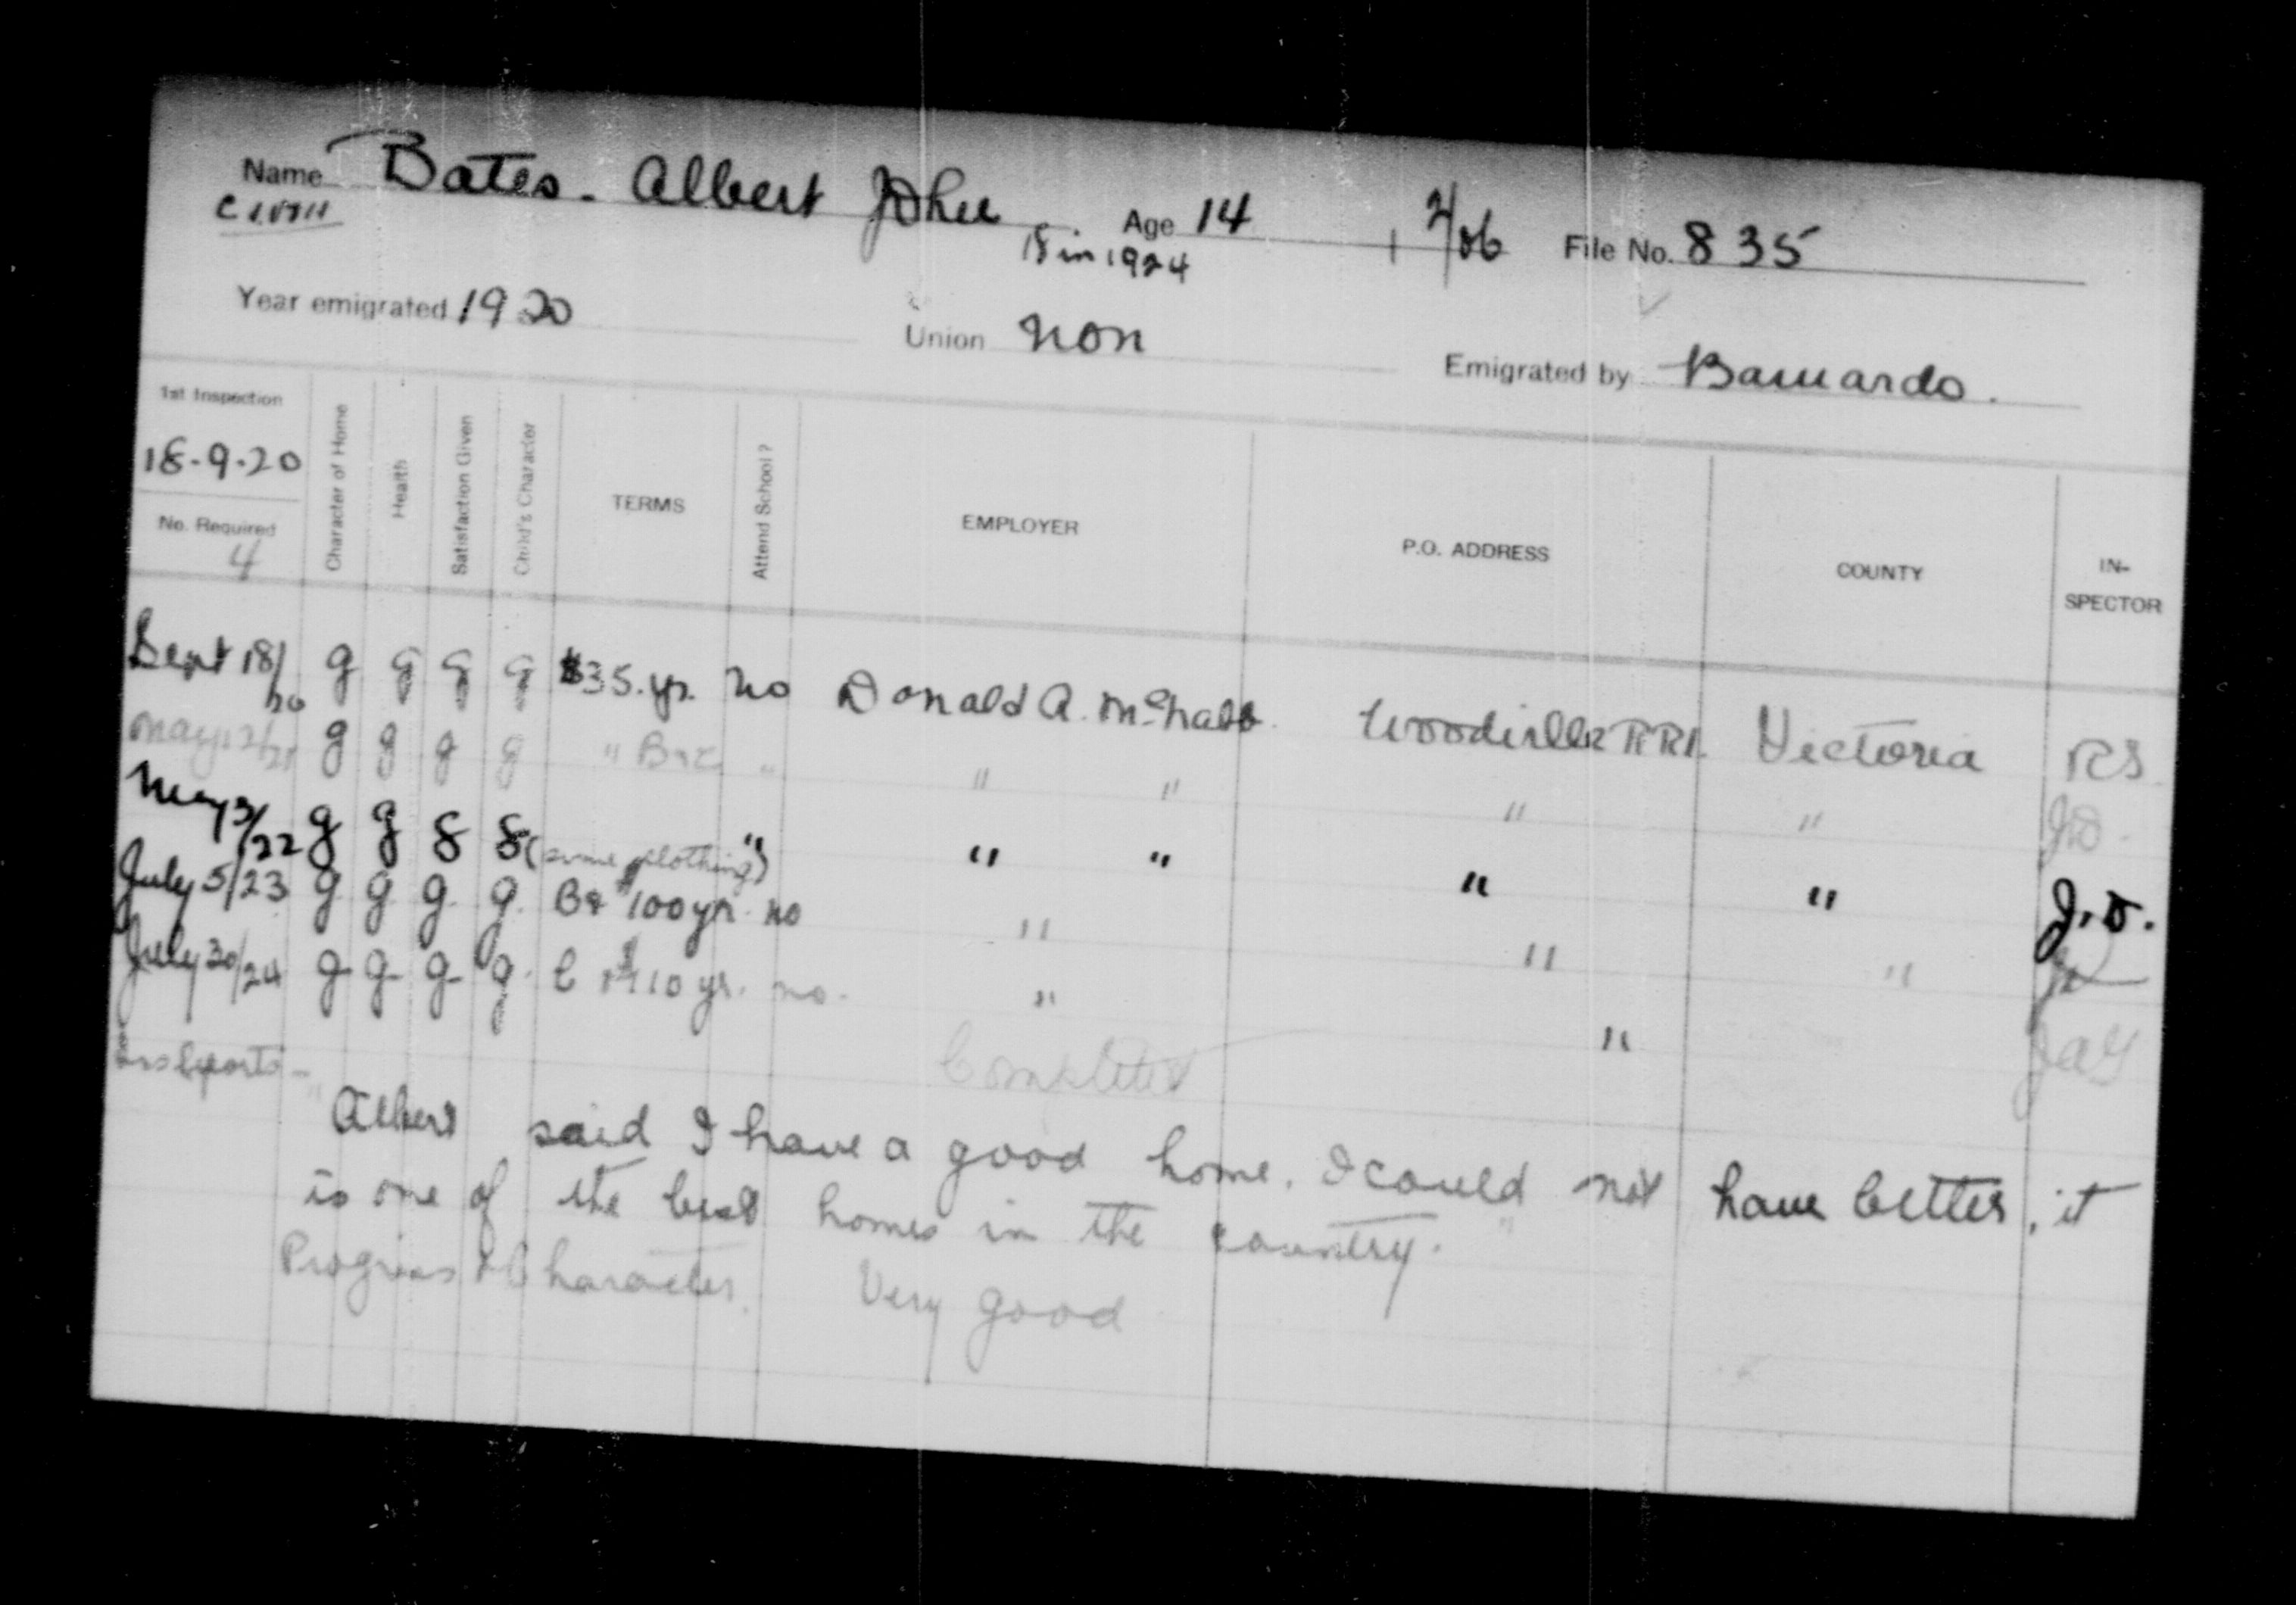 Name Bates - Albert John Age 14 2/06 File No. 835
18 in 1924
Year emigrated 1920 Union non Emigrated by Barnardo.
1st Inspection
18-9-20
No. Required
4
Character of Home Health Satisfaction Given Child's Character TERMS Attend School? EMPLOYER P.O. ADDRESS COUNTY IN-SPECTOR
Sept 18/20 g g g g $35. yr. no Donald A. McNabb. Woodville RR1. Victoria RS
May 12/21 g g g g " " " " " " J.D.
May 3/22 g g g g (some clothing) " " " " " J.D.
July 5/23 g g g g B& $100 yr. no " " "
July 30/24 g g g g $110 yr. no. " "
Completed
Albert said I have a good home. I could not have better, it
is one of the best homes in the country.
Progress & Character. Very good